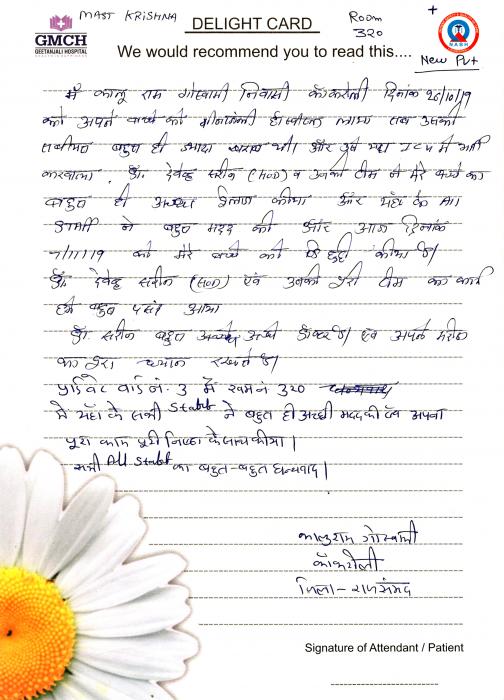 MAST KRISHNA
Room
320
+
New Pvt
GMCH
GEETANJALI HOSPITAL
DELIGHT CARD
NABH
We would recommend you to read this....
मैं कालु राम गोस्वामी निवासी कॉकरोली दिनांक 26/10/19
को अपने बच्चे को गीतांजली हॉस्पीटल लाया तब उसकी
तबीयत बहुत ही ज्यादा खराब थी। और उसे यहा ICU में भर्ती
करवाया. डॉ. देवेन्द्र सरीन (HOD) व उनकी टीम ने मेरे बच्चे का
बहुत ही अच्छा ईलाज कीया और यहाँ के All
Staff ने बहुत मदद की और आज दिनांक
7/11/19 को मेरे बच्चे को छुट्टी कीया है।
डॉ. देवेन्द्र सरीन (HOD) एवं उनकी पूरी टीम का कार्य
हमे बहुत पसंद आया
डॉ. सरीन बहुत अच्छे डॉक्टर है। एवं अपने मरीज
का पूरा ध्यान रखते है।
प्राईवेट वार्ड नं. 3 में रूम नं 320
मे यहाँ के सभी Staff ने बहुत ही अच्छी मदद की एवं अपना
पूरा काम पूरी निष्ठा के साथ कीया।
सभी All Staff का बहुत-बहुत धन्यवाद।
कालुराम गोस्वामी
कॉकरोली
जिला - राजसंमद
Signature of Attendant / Patient